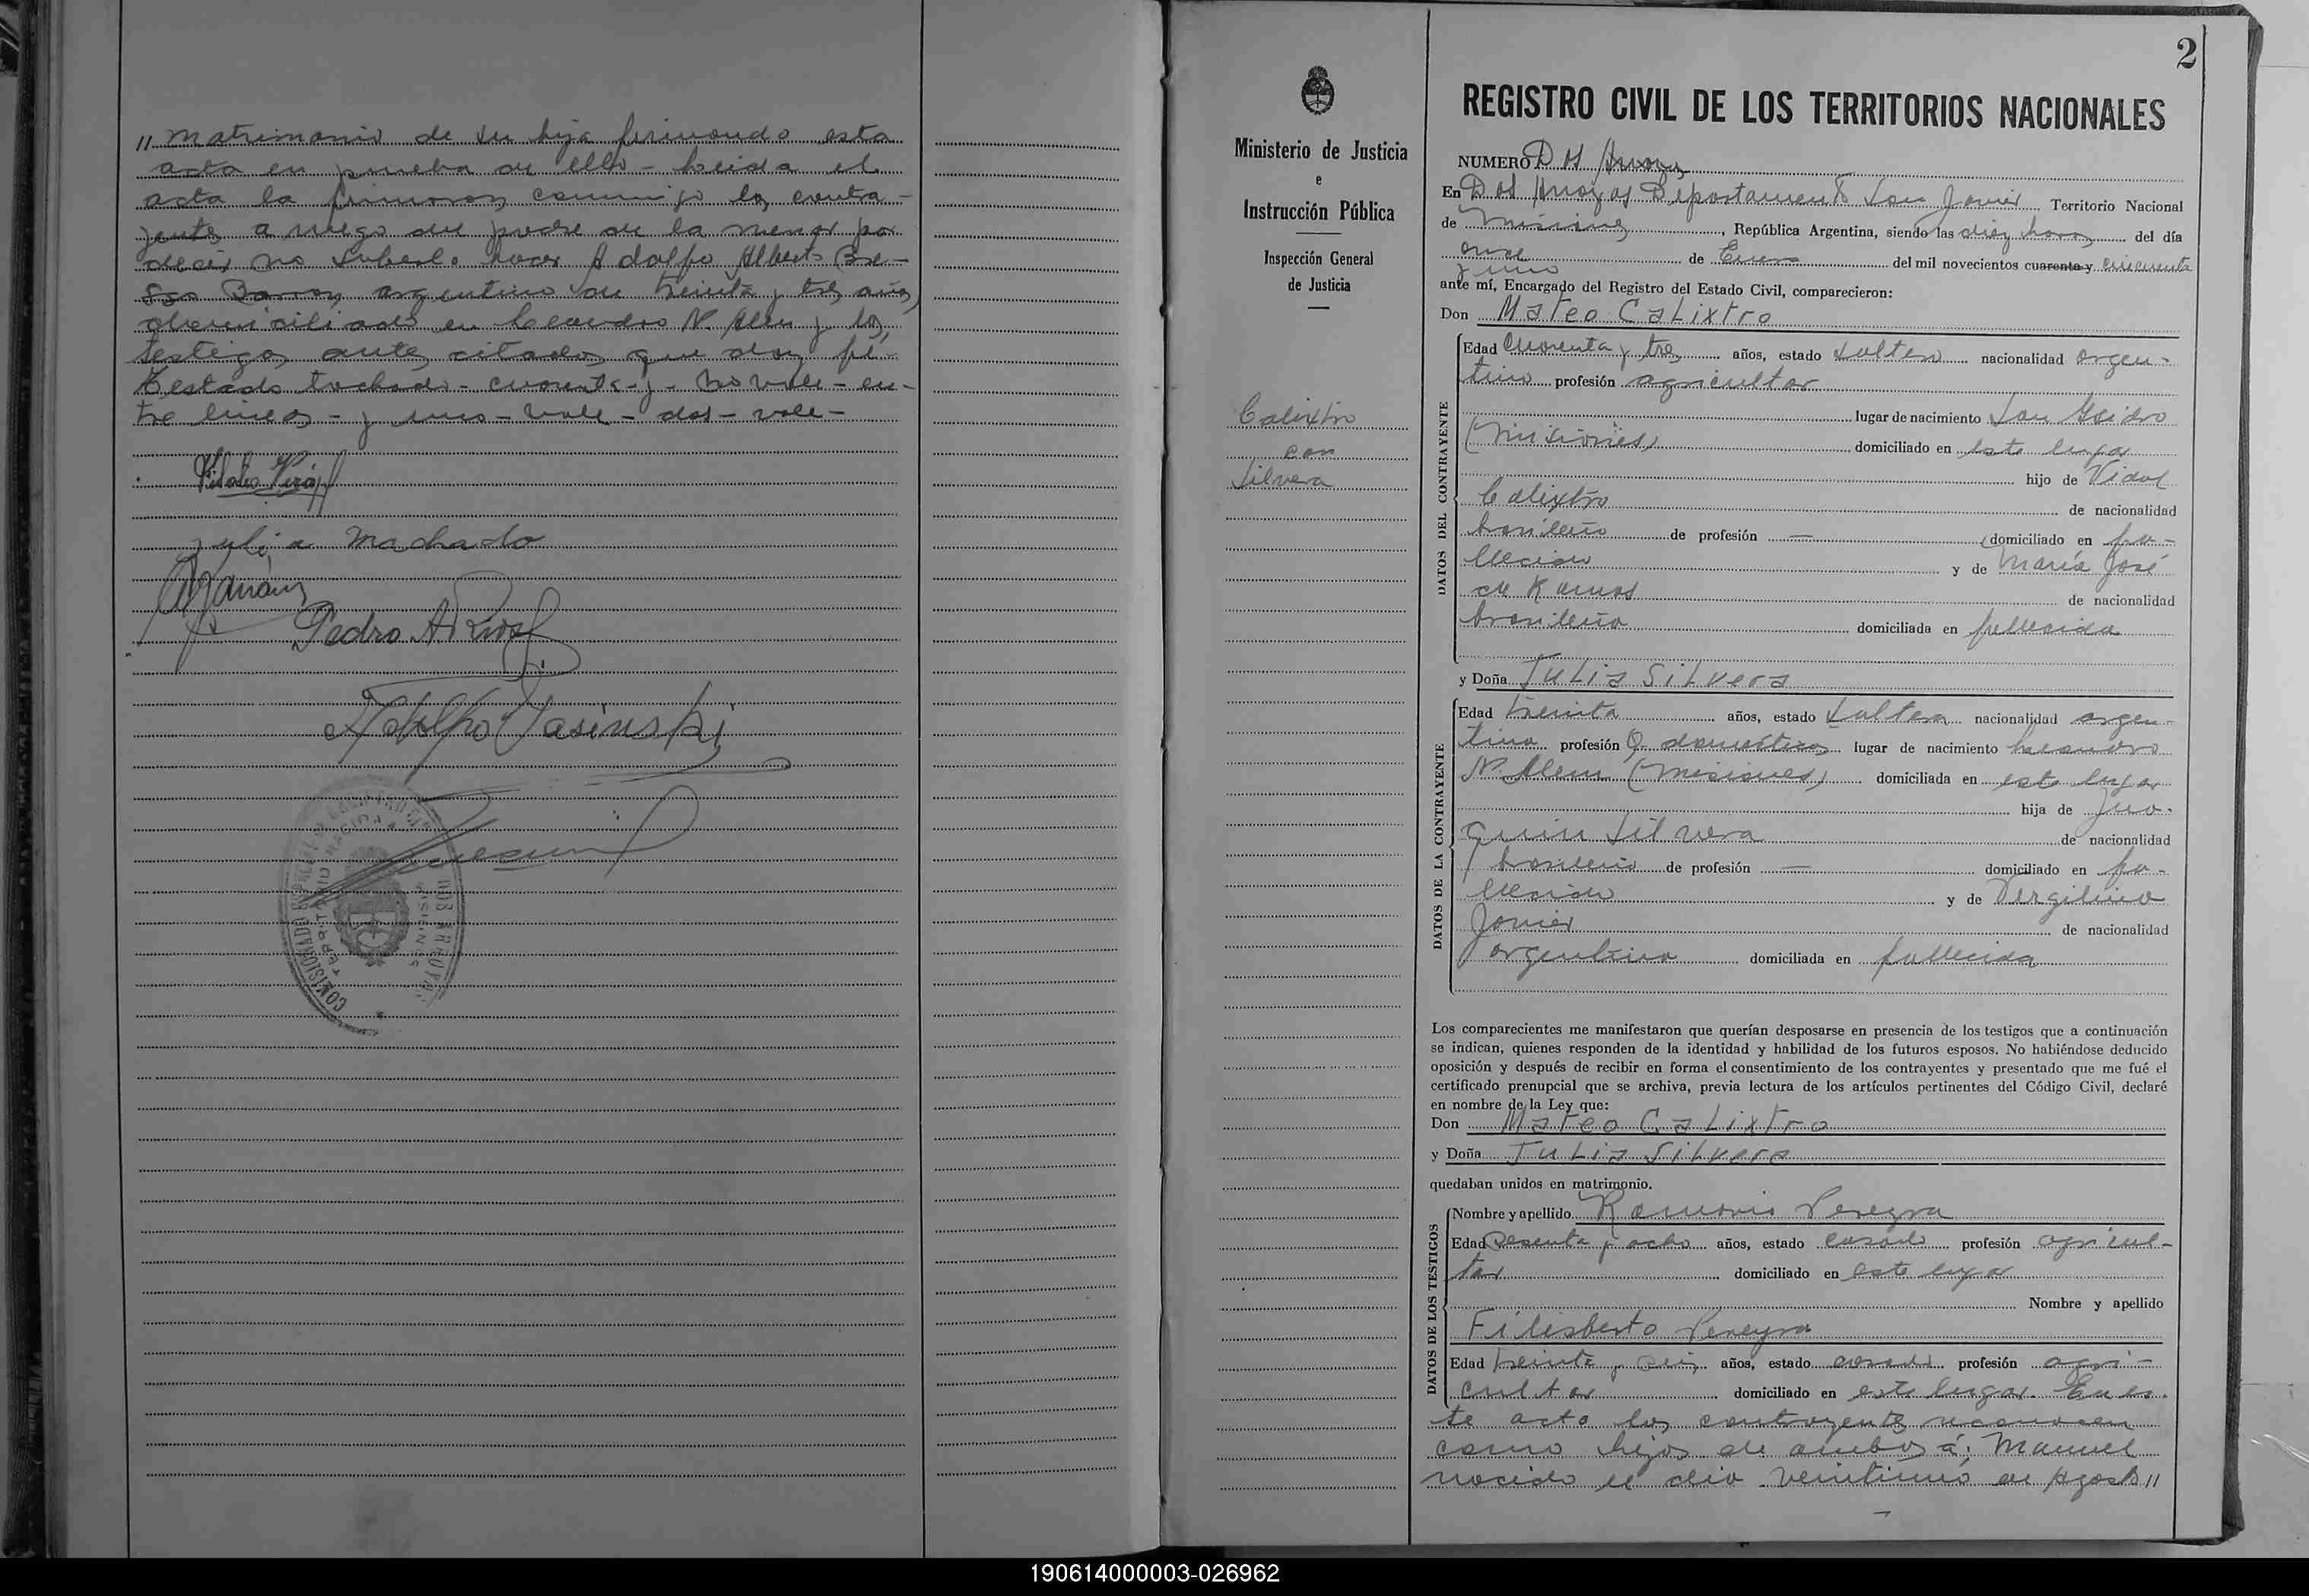 " matrimonio de su hija firmando esta
acta en prueba de ello - Leida el
acta la firmaron conmigo los contra-
yentes a ruego del padre de la menor por
decir no saberlo hacer Adolfo Alberto
argentino de treinta y tres años
domiciliado en Leandro N. Alem y los
testigos antes citados que doy fé.
Testado tachado - cuarenta - y - No vale - en-
tre lineas - y uno - vale - dos - vale -
Julia Machado
Pedro A Rios
Adolfo Yasinski
DOS ARROYOS
MISIONES
2
Ministerio de Justicia
e
Instrucción Pública
Inspección General
de Justicia
Calixtro
con
Silvera
REGISTRO CIVIL DE LOS TERRITORIOS NACIONALES
NUMERO Dos
En Dos Arroyos Departamento San Javier Territorio Nacional
de Misiones, República Argentina, siendo las diez horas del día
once de Enero del mil novecientos cuarenta y cincuenta
y uno
ante mí, Encargado del Registro del Estado Civil, comparecieron:
Don Mateo Calixtro
DATOS DEL CONTRAYENTE
Edad Cuarenta y tres años, estado soltero nacionalidad argen-
tino profesión agricultor
lugar de nacimiento San Isidro
(Misiones) domiciliado en este lugar
hijo de Vidal
Calixtro de nacionalidad
brasileño de profesión — domiciliado en fa-
llecido y de María José
de Ramos de nacionalidad
brasileña domiciliada en fallecida
y Doña Julia Silvera
DATOS DE LA CONTRAYENTE
Edad treinta años, estado soltera nacionalidad argen-
tina profesión Q. domésticos lugar de nacimiento Leandro
N. Alem (Misiones) domiciliada en este lugar
hija de Joa-
quin Silvera de nacionalidad
brasileño de profesión — domiciliado en fa-
llecido y de Vergilina
Javier de nacionalidad
argentina domiciliada en fallecida
Los comparecientes me manifestaron que querían desposarse en presencia de los testigos que a continuación
se indican, quienes responden de la identidad y habilidad de los futuros esposos. No habiéndose deducido
oposición y después de recibir en forma el consentimiento de los contrayentes y presentado que me fué el
certificado prenupcial que se archiva, previa lectura de los artículos pertinentes del Código Civil, declaré
en nombre de la Ley que:
Don Mateo Calixtro
y Doña Julia Silvera
quedaban unidos en matrimonio.
DATOS DE LOS TESTIGOS
Nombre y apellido Ramonio Pereyra
Edad Sesenta y ocho años, estado casado profesión agricul-
tor domiciliado en este lugar
Nombre y apellido
Filisberto Pereyra
Edad treinta y seis años, estado casado profesión agri-
cultor domiciliado en este lugar. En es-
te acto los contrayentes reconocen
como hijos de ambos á: Manuel
nacido el dia veintiuno de Agosto "
190614000003-026962